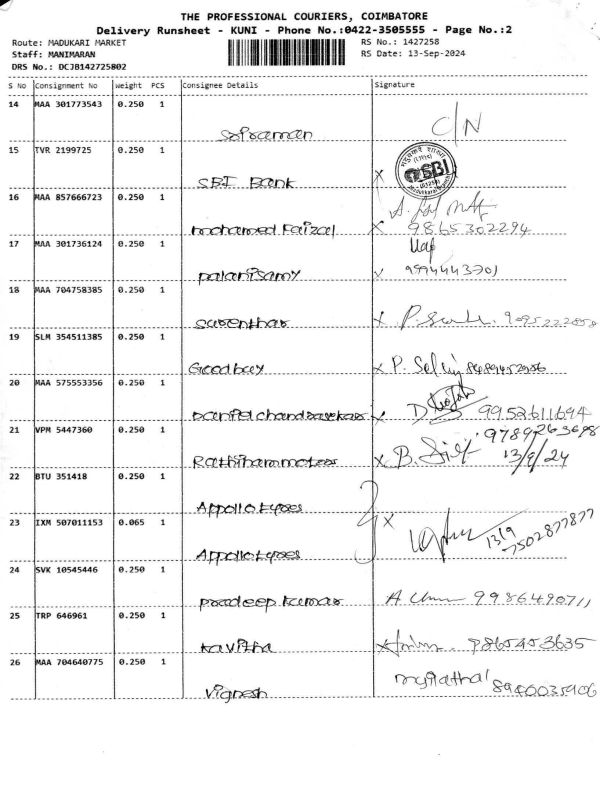 THE PROFESSIONAL COURIERS, COIMBATORE
Delivery Runsheet - KUNI - Phone No.:0422-3505555 - Page No.:2
Route: MADUKARI MARKET RS No.: 1427258
Staff: MANIMARAN RS Date: 13-Sep-2024
DRS No.: DCJB142725802
S No Consignment No Weight PCS Consignee Details Signature
14 MAA 301773543 0.250 1
C/N
15 TVR 2199725 0.250 1
SBI
SBI Bank X
16 MAA 857666723 0.250 1
mohamed Faizal X 9865302294
17 MAA 301736124 0.250 1
palanisamy
18 MAA 704758385 0.250 1
surenthar X
19 SLM 354511385 0.250 1
Goodbay X P. Selvij
20 MAA 575553356 0.250 1
Daniel chandrasekar X 9952611694
21 VPM 5447360 0.250 1
Rathinam motors X B. 13/9/24
22 BTU 351418 0.250 1
Appollo tyres
23 IXM 507011153 0.065 1
X 13/9 7502877877
Appollo tyres
24 SVK 10545446 0.250 1
pradeep kumar 9986490711
25 TRP 646961 0.250 1
kavitha X 9865453635
26 MAA 704640775 0.250 1
Vignesh 8940035906